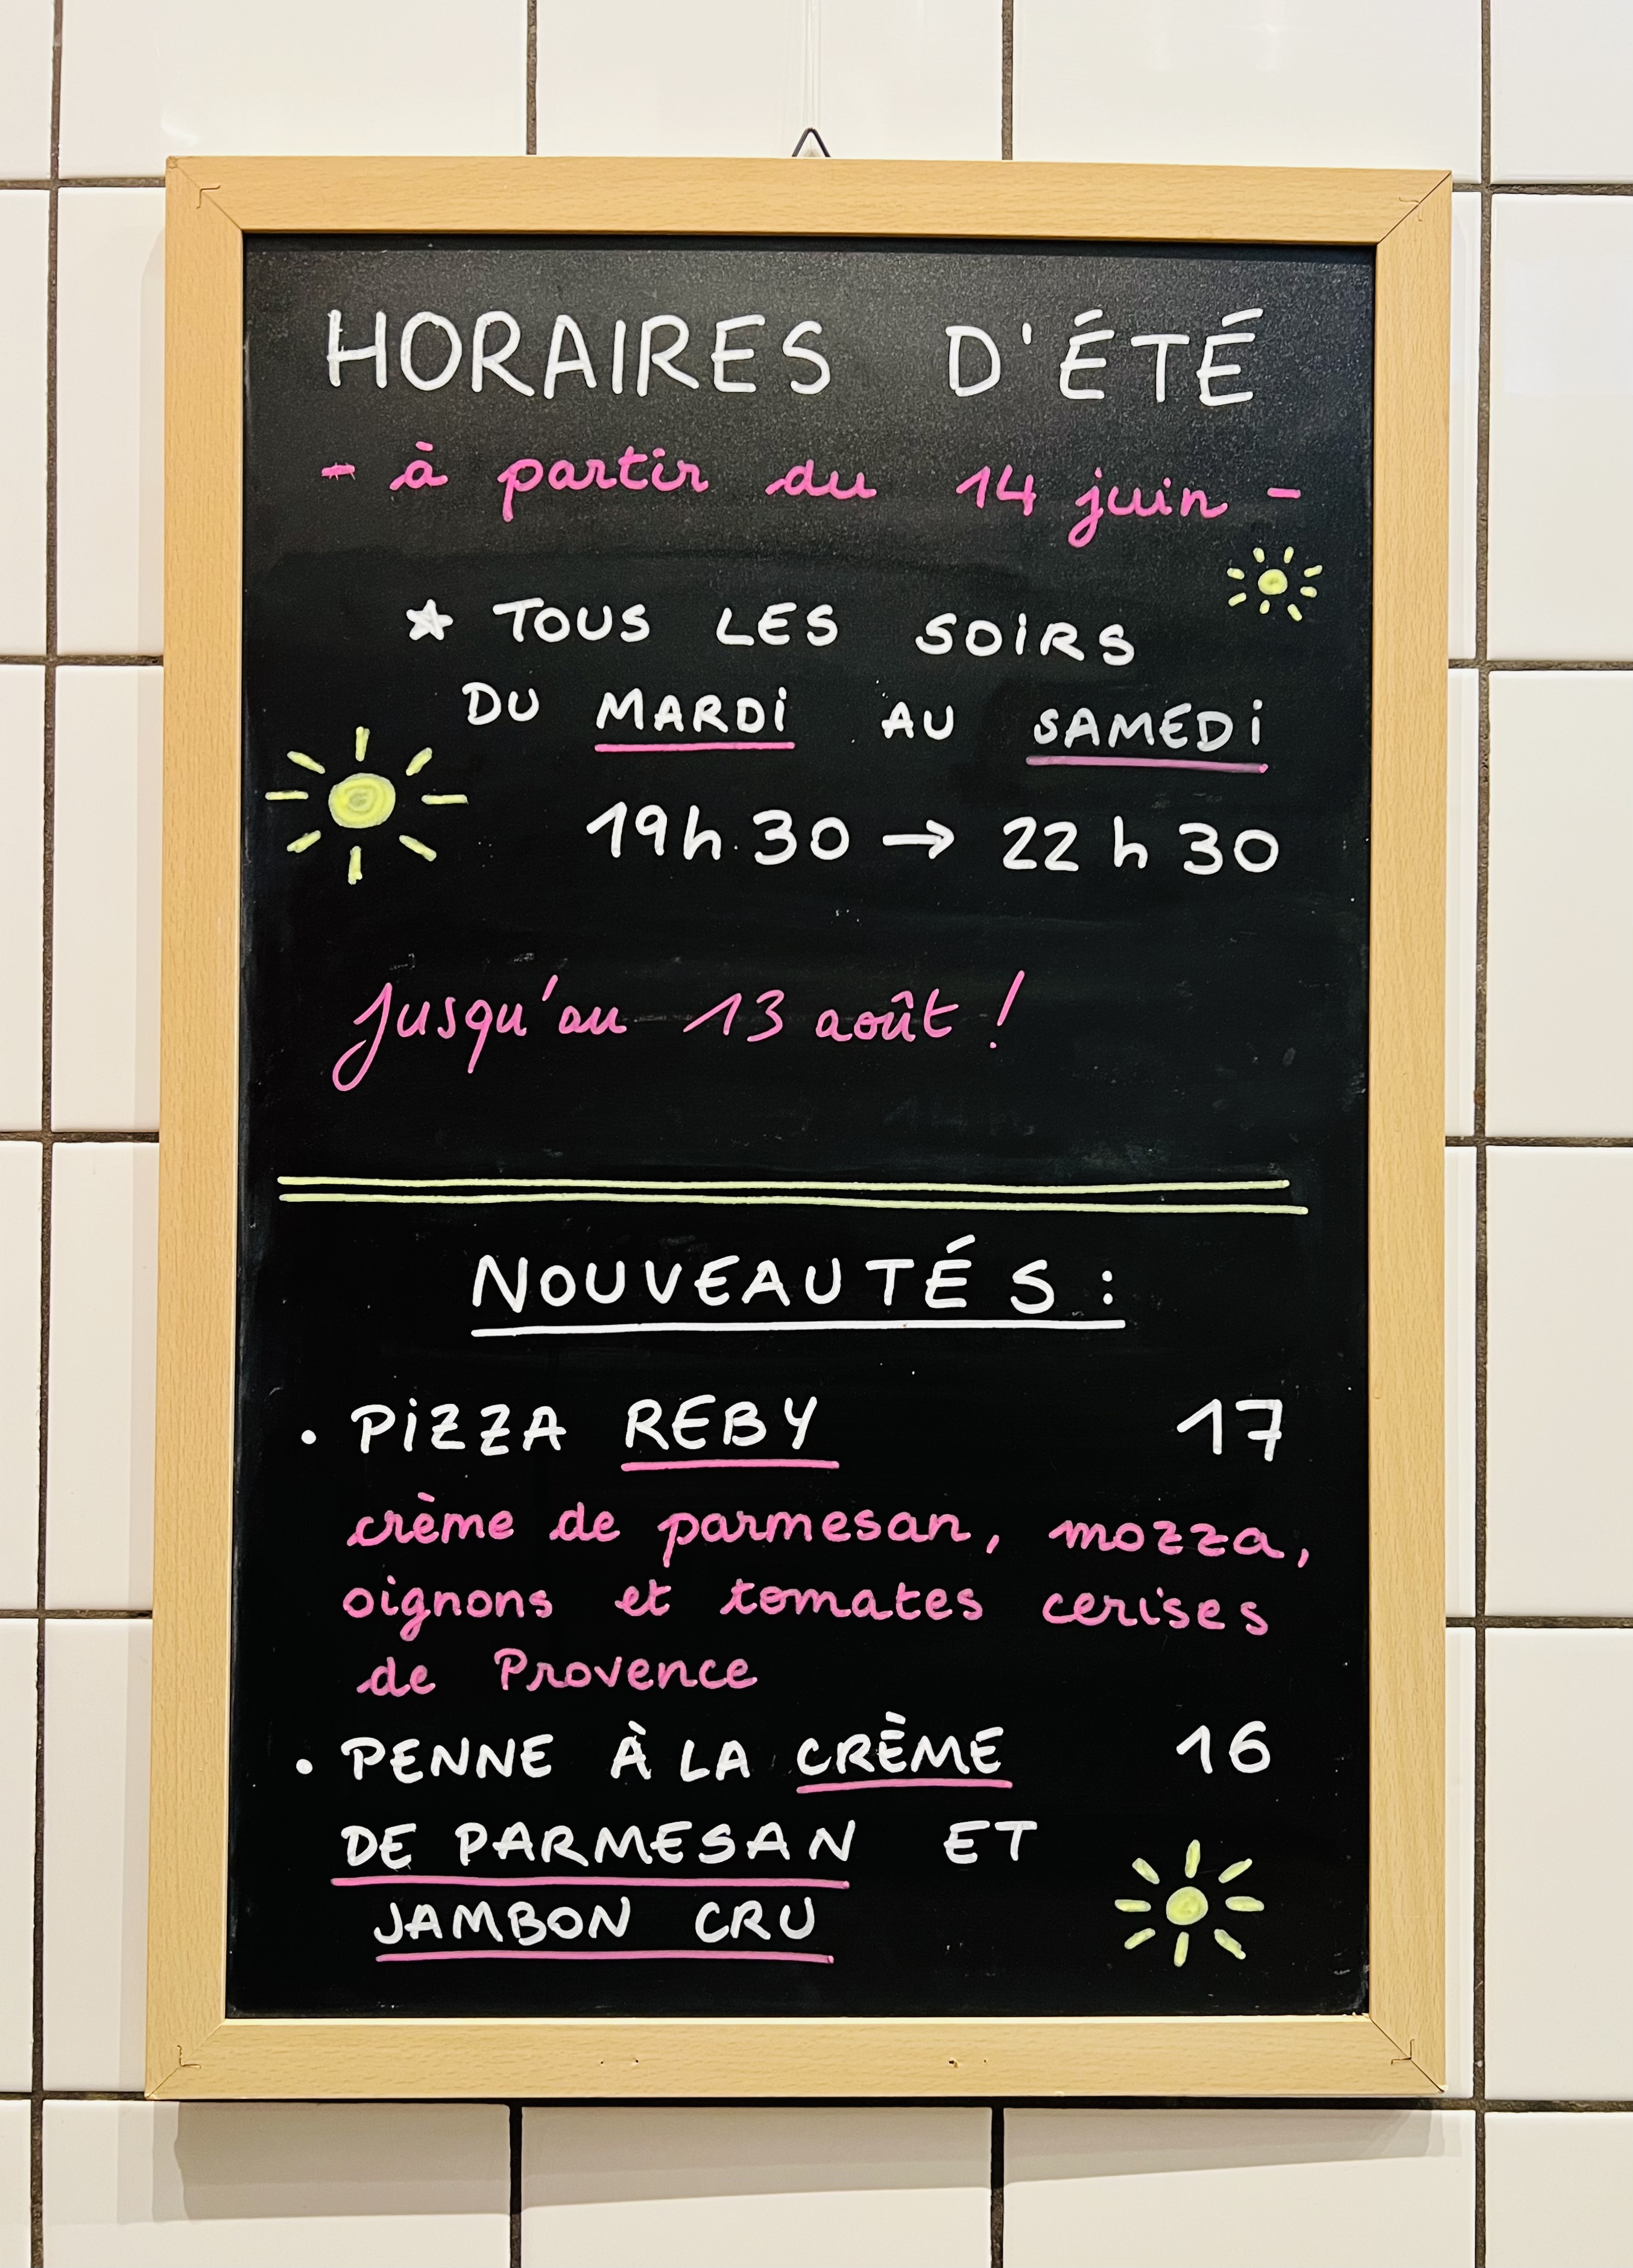 HORAIRES D'ÉTÉ
- à partir du 14 juin -
★ TOUS LES SOIRS
DU MARDI AU SAMEDI
19h30 → 22h30
Jusqu'au 13 août !
NOUVEAUTÉS :
• PIZZA REBY 17
crème de parmesan, mozza,
oignons et tomates cerises
de Provence
• PENNE À LA CRÈME 16
DE PARMESAN ET
JAMBON CRU